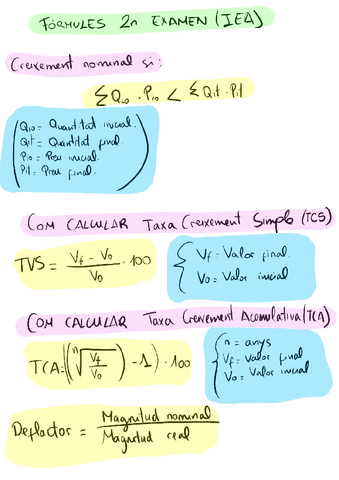 FÓRMULES 2n EXAMEN (IEA)
Creixement nominal si:
ΣQio · Pio < ΣQit · Pit
Qio = Quantitat inicial.
Qit = Quantitat final.
Pio = Preu inicial.
Pit = Preu final.
COM CALCULAR Taxa Creixement Simple (TCS)
TVS = (Vf - Vo) / Vo · 100
Vf = Valor final.
Vo = Valor inicial
COM CALCULAR Taxa Creixement Acomulativa (TCA)
TCA = ((ⁿ√(Vf / Vo)) - 1) · 100
n = anys
Vf = Valor final
Vo = Valor inicial
Deflactor = Magnitud nominal / Magnitud real